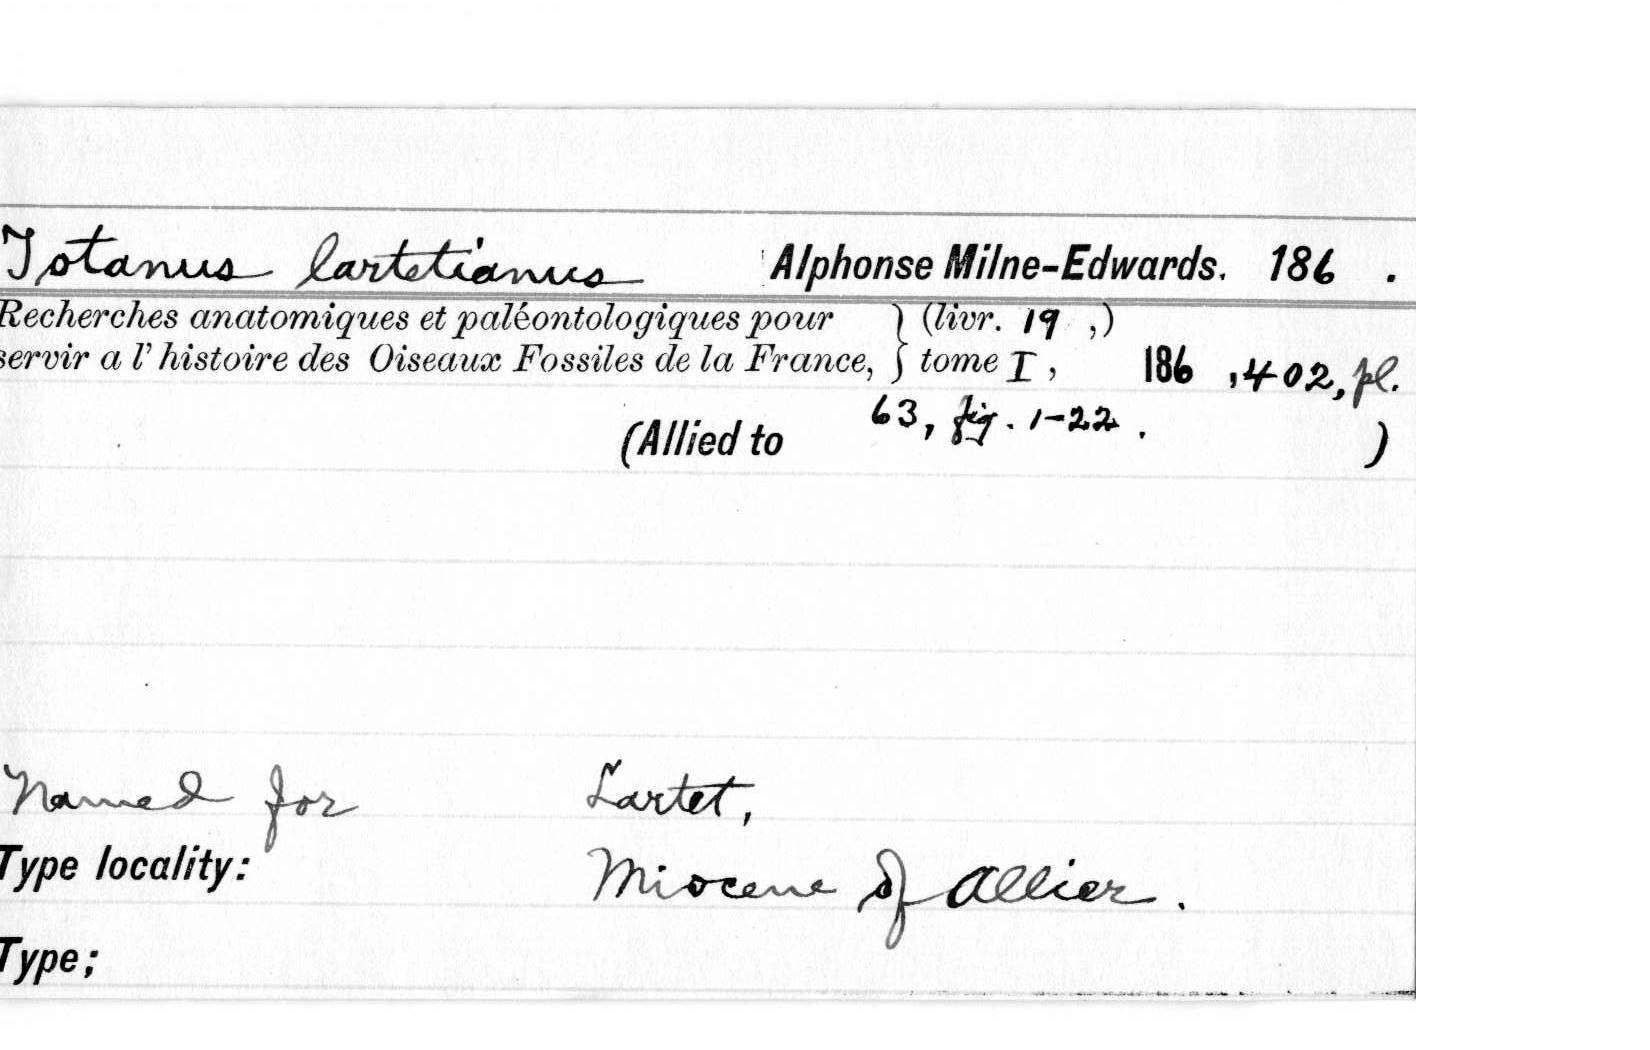 Totanus lartetianus Alphonse Milne-Edwards. 186 .
Recherches anatomiques et paléontologiques pour } (livr. 19 ,)
servir a l'histoire des Oiseaux Fossiles de la France, } tome I, 186 , 402, pl.
63, fig. 1-22.
(Allied to )
Named for Lartet,
Type locality: Miocene of Allier.
Type;